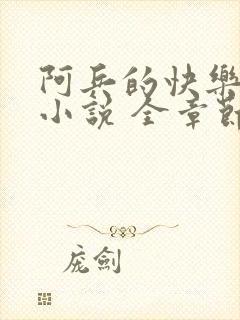 阿兵的快樂
小說 全章節
庞劍